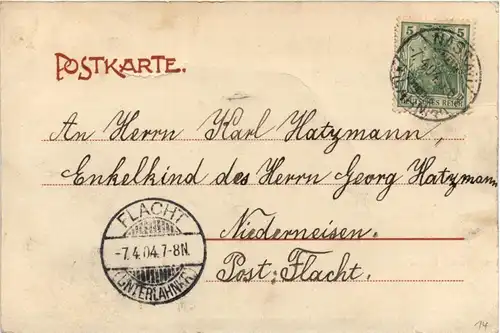 POSTKARTE.
5
NASSAU
DEUTSCHES REICH
An Herrn Karl Hatzmann,
Enkelkind des Herrn Georg Hatzmann
Niederneisen.
Post: Flacht.
FLACHT
-7.4.04.7-8N.
(UNTERLAHNKR.)
14